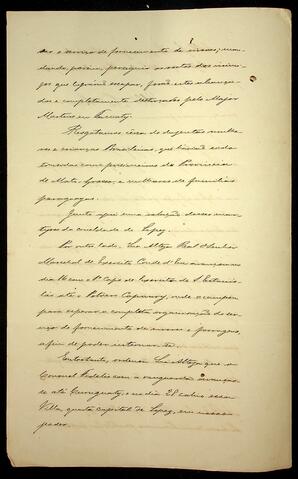 das o serviço de fornecimento de viveres; man-
dando, porém, perseguir os restos dos inimi-
gos que lograrão escapar, forão estes alcança-
dos e completamente destroçados pelo Major
Martins em
Resgatamos cerca de duzentas mulhe-
res e crianças Brasileiras, que havião sido
tomadas como prisioneiras da Provincia
de Mato-Grosso, e milhares de familias
paraguayas.
Junto aqui uma relação desses mar-
tyres da crueldade de Lopez.
Por outro lado, Sua Alteza Real o Senhor
Marechal de Exercito Conde d'Eu avançou no
dia 16 com o 1º Corpo de Exercito de S. Estanis-
láo até o Potrero Capivary, onde o acampou
para esperar a completa organisação do ser-
viço de fornecimento de viveres e forragens,
afim de poder internar-se.
Entretanto, ordenou Sua Alteza que o
Coronel Fidelis com a vanguarda avanças-
se até Curuguaty; e no dia 28 cahio essa
Villa, quarta capital de Lopez, em nosso
poder.